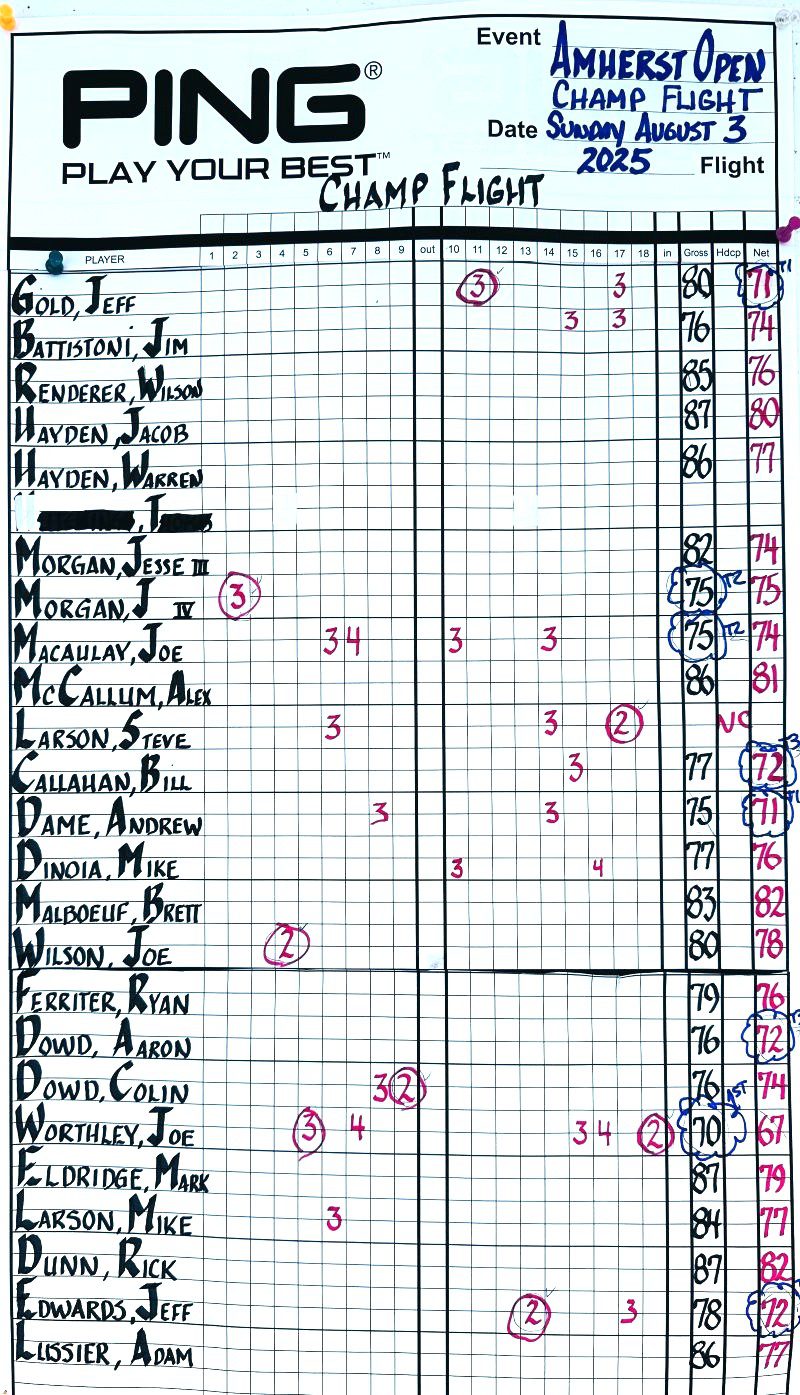 Event AMHERST OPEN
CHAMP FLIGHT
PING®
Date SUNDAY AUGUST 3
2025 Flight
PLAY YOUR BEST™
CHAMP FLIGHT
PLAYER 1 2 3 4 5 6 7 8 9 out 10 11 12 13 14 15 16 17 18 in Gross Hdcp Net
GOLD, JEFF 3 3 80 71 T1
BATTISTONI, JIM 3 3 76 74
RENDERER, WILSON 85 76
HAYDEN, JACOB 87 80
HAYDEN, WARREN 86 77
MORGAN, JESSE III 82 74
MORGAN, J IV 3 75 T2 75
MACAULAY, JOE 3 4 3 3 75 T2 74
MCCALLUM, ALEX 86 81
LARSON, STEVE 3 3 2 NC
CALLAHAN, BILL 3 77 72 T3
DAME, ANDREW 3 3 75 71 T1
DINOIA, MIKE 3 4 77 76
MALBOEUF, BRETT 83 82
WILSON, JOE 2 80 78
FERRITER, RYAN 79 76
DOWD, AARON 76 72 T3
DOWD, COLIN 3 2 76 74
WORTHLEY, JOE 3 4 3 4 2 70 1ST 67
ELDRIDGE, MARK 87 79
LARSON, MIKE 3 84 77
DUNN, RICK 87 82
EDWARDS, JEFF 2 3 78 72
LUSSIER, ADAM 86 77